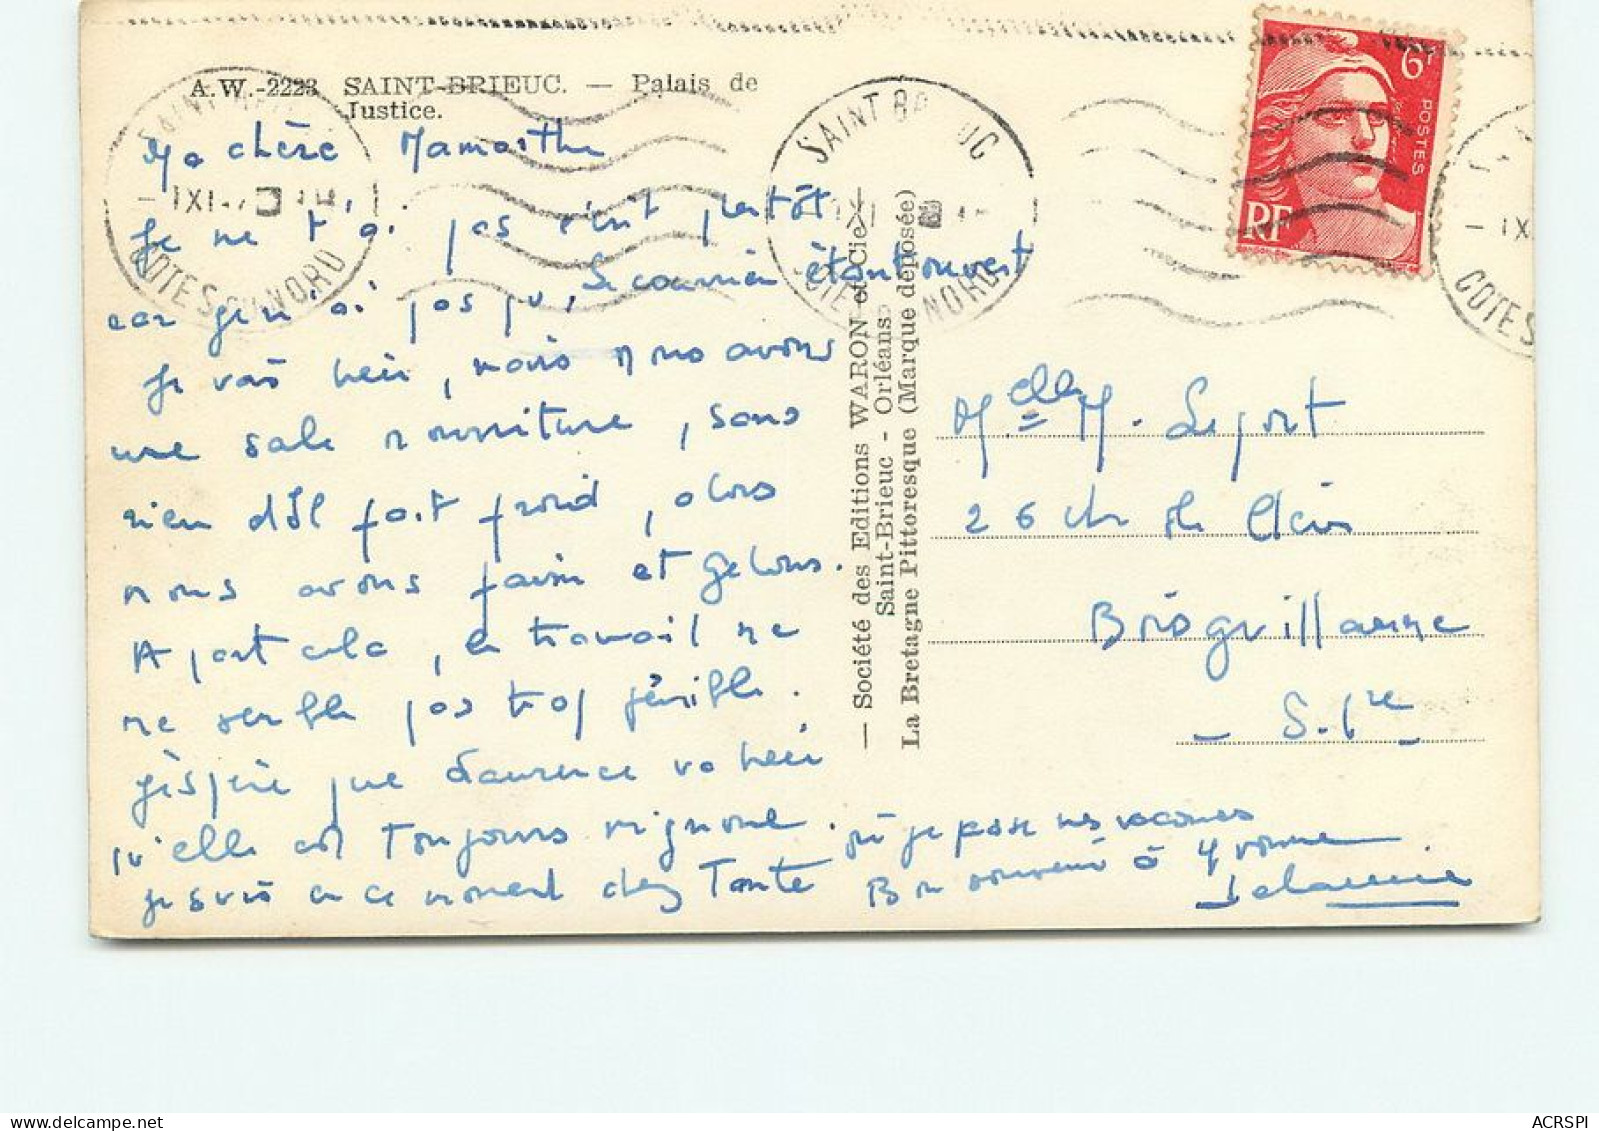 A.W.-2223 SAINT-BRIEUC. — Palais de
Justice.
Ma chère Mamarthe
Je ne t'ai pas écrit plutôt
car je n'ai pas pu, le courrier étant ouvert
Je vais bien, mais nous avons
une sale nourriture, sans
rien d'Il fait froid, alors
nous avons faim et gelons.
A part cela, le travail ne
me semble pas trop pénible.
j'espère que Laurence va bien
qu'elle est toujours mignonne.
Je suis en ce moment chez Tante
où je passe mes vacances
Bon souvenir à Yvonne
— Société des Editions WARON et Cie
Saint-Brieuc - Orléans
La Bretagne Pittoresque (Marque déposée)
SAINT BRIEUC
COTES DU NORD
6F
POSTES
RF
Melle M. Lefort
26 ch de
- S. Ire -
SAINT BRIEUC
COTES DU NORD
COTES
ACRSPI